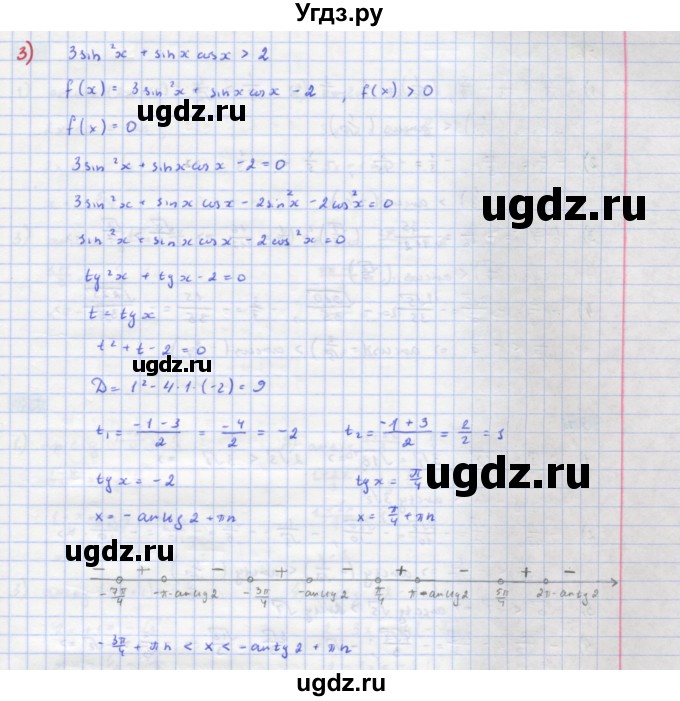 Угдз.ру
3) 3sin²x + sinx cosx > 2
f(x) = 3sin²x + sinx cosx - 2 , f(x) > 0
ugdz.ru
f(x) = 0
3sin²x + sinx cosx - 2 = 0
3sin²x + sinx cosx - 2sin²x - 2cos²x = 0
ugdz.ru
sin²x + sinx cosx - 2cos²x = 0
tg²x + tgx - 2 = 0
t = tgx
t² + t - 2 = 0
ugdz.ru
D = 1² - 4·1·(-2) = 9
t₁ = (-1-3)/2 = -4/2 = -2 t₂ = (-1+3)/2 = 2/2 = 1
tgx = -2 tgx = π/4
ugdz.ru
x = -arctg2 + πn x = π/4 + πn
ugdz.ru
- + - + - + - + -
-7π/4 -π-arctg2 -3π/4 -arctg2 π/4 π-arctg2 5π/4 2π-arctg2
-3π/4 + πn < x < -arctg2 + πn
ugdz.ru
ugdz.ru